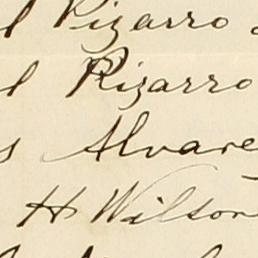 l Pizarro
l Pizarro
s Alvare
H Wilson